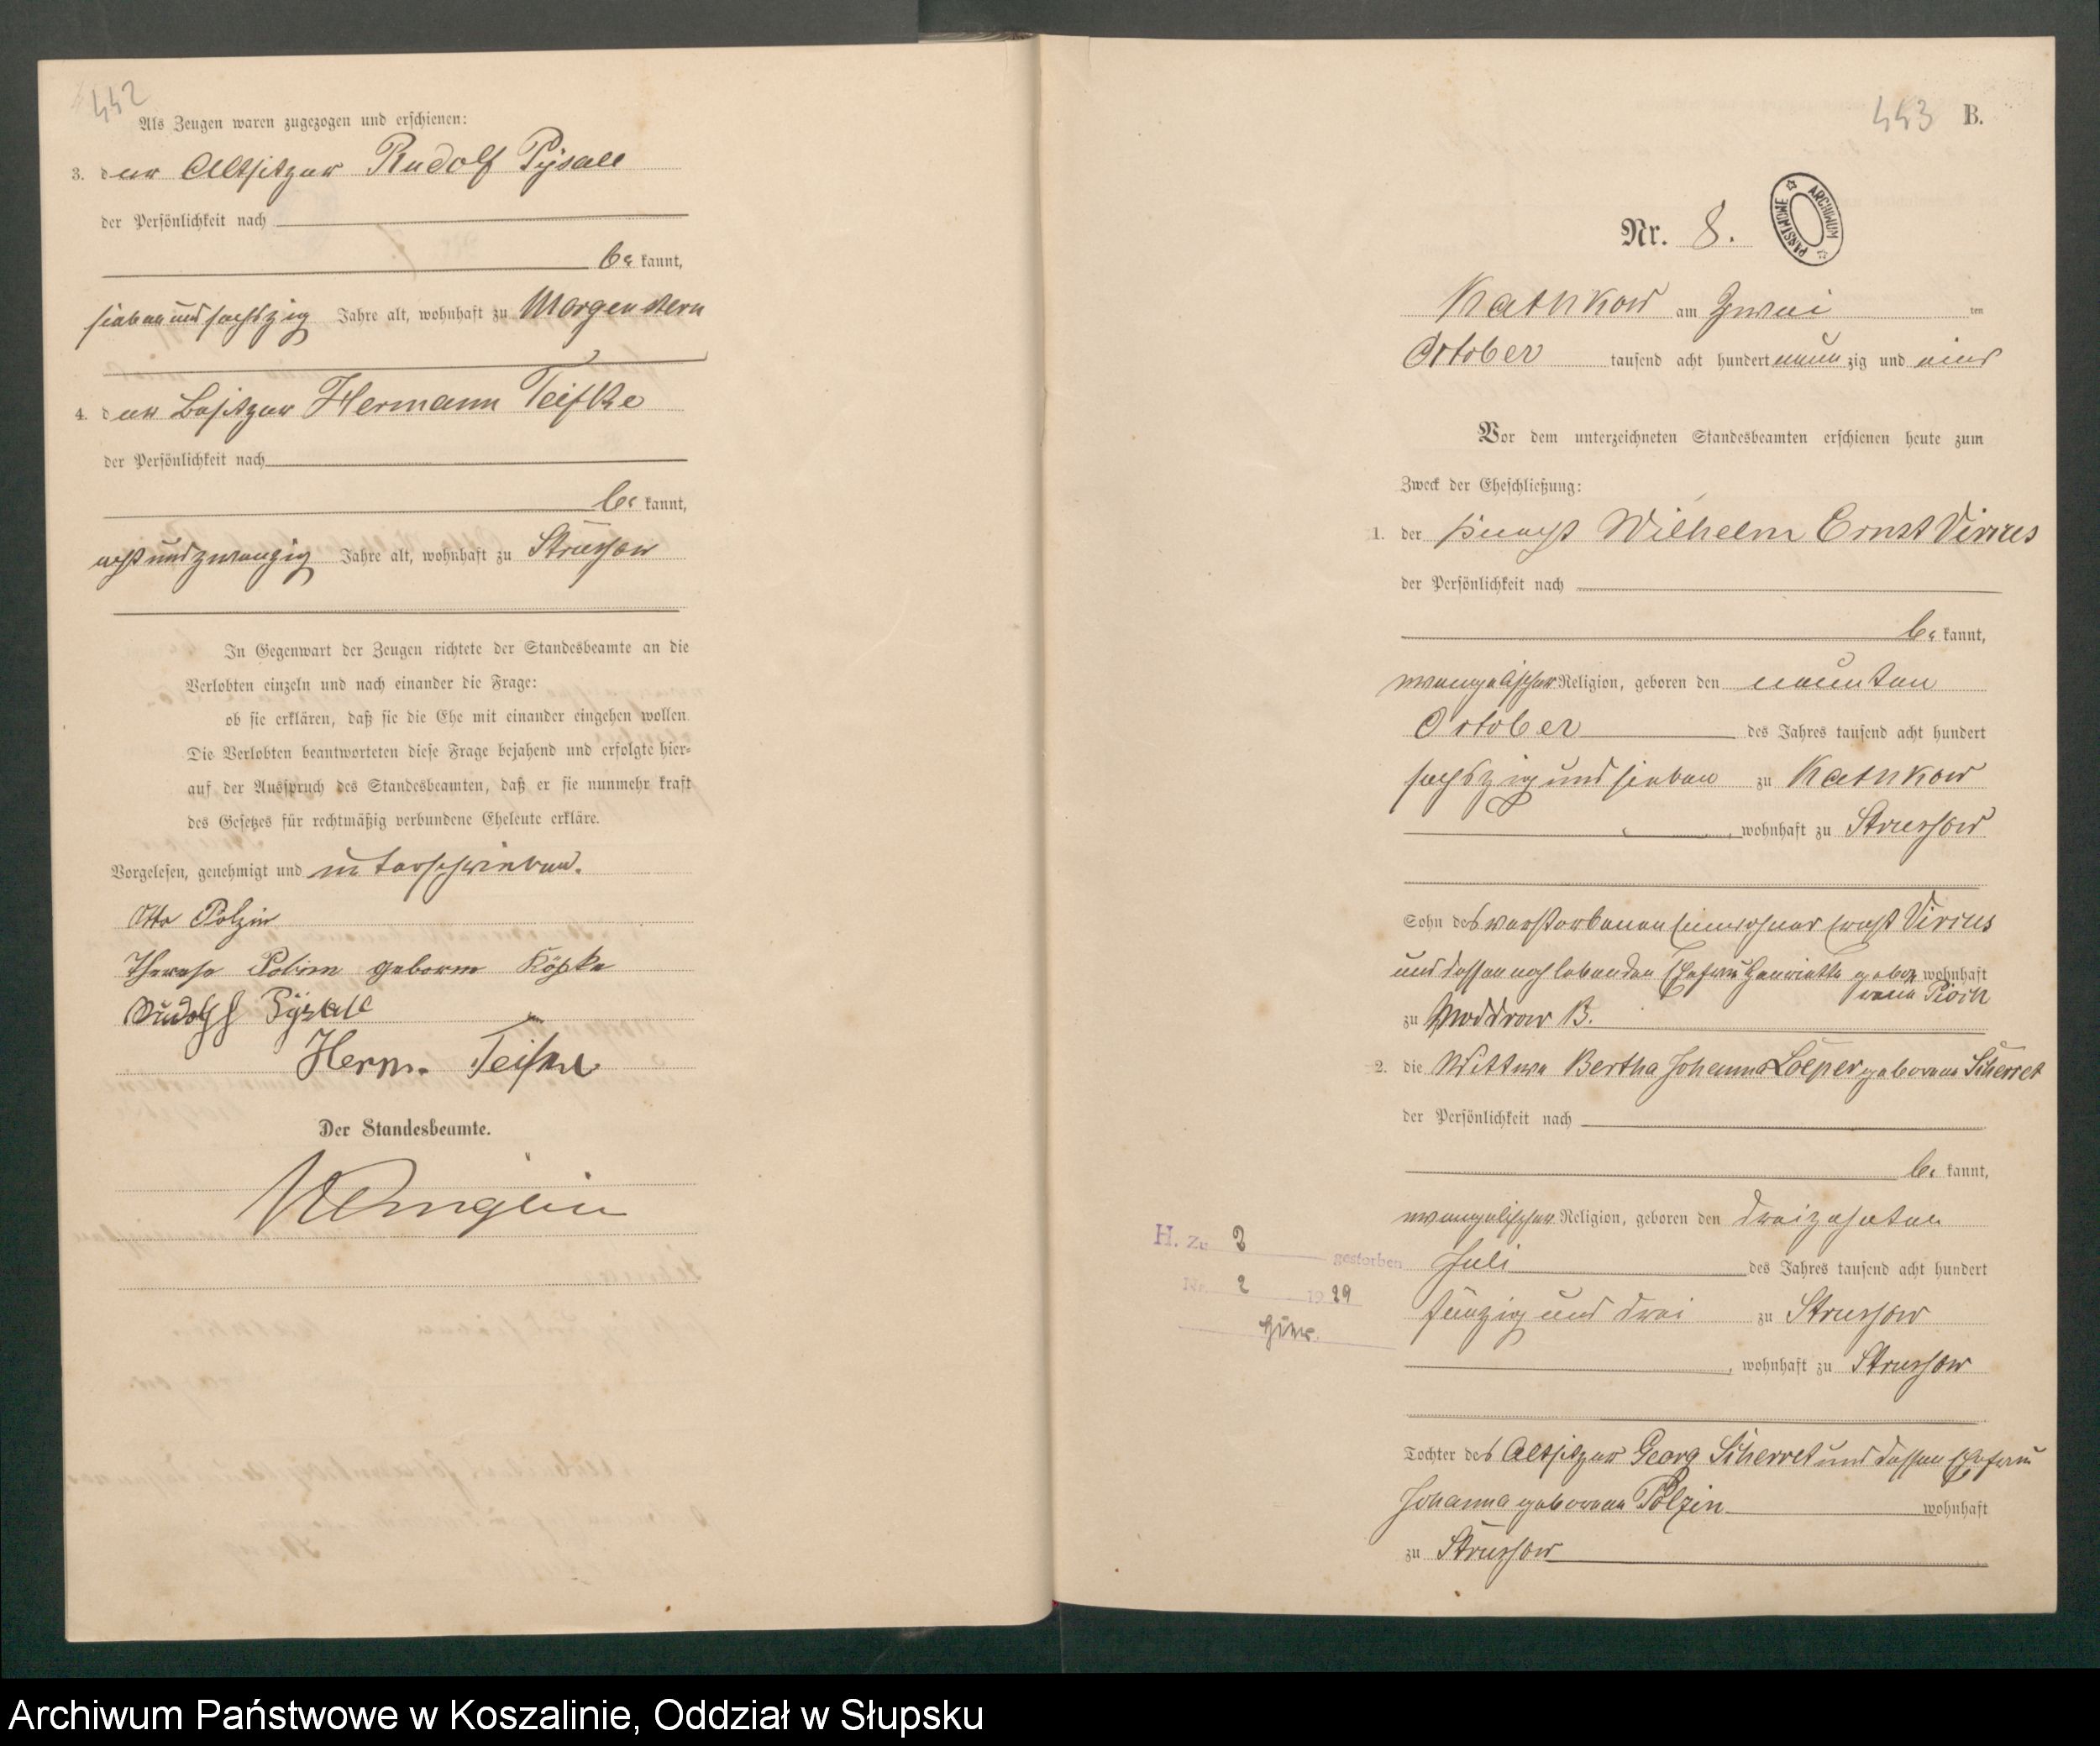 442
Als Zeugen waren zugezogen und erschienen:
3. der Altsitzer Rudolf Pysall
der Persönlichkeit nach
be kannt,
sieben und sechszig Jahre alt, wohnhaft zu Morgenstern
4. der Besitzer Hermann Teifke
der Persönlichkeit nach
be kannt,
acht und zwanzig Jahre alt, wohnhaft zu Strussow
In Gegenwart der Zeugen richtete der Standesbeamte an die
Verlobten einzeln und nach einander die Frage:
ob sie erklären, daß sie die Ehe mit einander eingehen wollen.
Die Verlobten beantworteten diese Frage bejahend und erfolgte hier-
auf der Ausspruch des Standesbeamten, daß er sie nunmehr kraft
des Gesetzes für rechtmäßig verbundene Eheleute erkläre.
Vorgelesen, genehmigt und unterschrieben.
Otto Polzin
Therese Polzin geborene Köpke
Rudolf
Herm. Teifke
Der Standesbeamte.
443 B.
Nr. 8.
ARCHIWUM PAŃSTWOWE
Kathkow am Zwei ten
October tausend acht hundert neun zig und eins
Vor dem unterzeichneten Standesbeamten erschienen heute zum
Zweck der Eheschließung:
1. der Knecht Wilhelm Ernst Virrus
der Persönlichkeit nach
be kannt,
evangelischer Religion, geboren den neunten
October des Jahres tausend acht hundert
sechszig und sieben zu Kathkow
, wohnhaft zu Strussow
Sohn des verstorbenen Einwohner Ernst Virrus
und dessen noch lebenden Ehefrau Henriette gebo- wohnhaft
rene Pioch
zu Moddrow B.
2. die Wittwe Bertha Johanna Loeper geborene Scherret
der Persönlichkeit nach
be kannt,
evangelischer Religion, geboren den dreizehnten
H. Zu 2 gestorben
Juli des Jahres tausend acht hundert
Nr. 2 1929
fünfzig und drei zu Strussow
, wohnhaft zu Strussow
Tochter des Altsitzer Georg Scherret und dessen Ehefrau
Johanna geborene Polzin wohnhaft
zu Strussow
Archiwum Państwowe w Koszalinie, Oddział w Słupsku